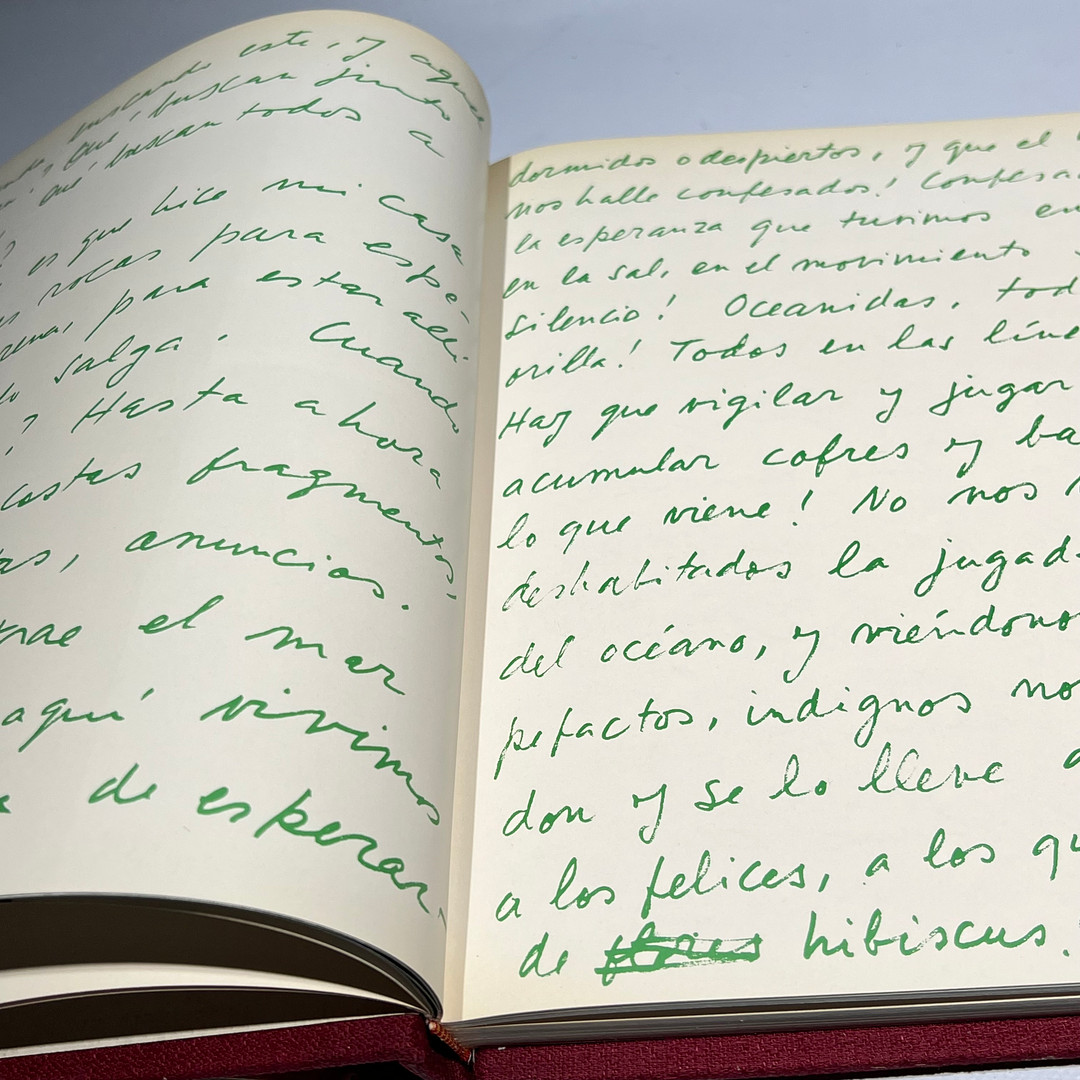 buscando este, y aquel
que, buscan junto
qué, buscan todos a
es que hice mi casa
rocas para espe-
para estar allí
salga. Cuando
? Hasta ahora
costas fragmentos,
anuncios.
trae el mar
aquí vivimos
de esperar,
dormidos o despiertos, y que el
nos halle confesados! Confesa
la esperanza que tuvimos en
en la sal, en el movimiento y
silencio! Oceanidas, tod
orilla! Todos en las líne
Hay que vigilar y jugar
acumular cofres y ba
lo que viene! No nos
deshabitados la jugad
del océano, y viéndono
pefactos, indignos no
don y se lo lleve a
a los felices, a los qu
de flores hibiscus.